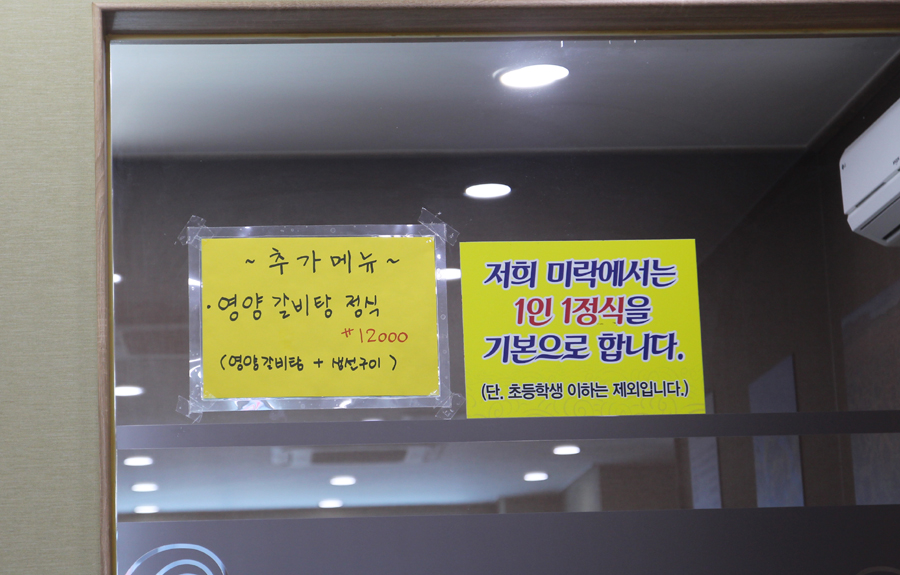 ~ 추가메뉴 ~
· 영양 갈비탕 정식
₩12000
(영양갈비탕 + 생선구이)
저희 미락에서는
1인 1정식을
기본으로 합니다.
(단, 초등학생 이하는 제외입니다.)